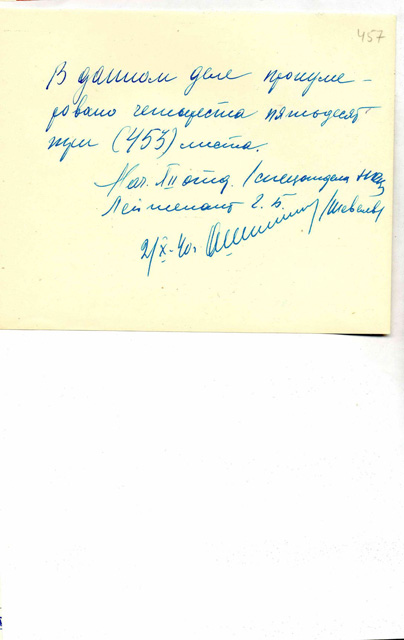 457
В данном деле пронуме-
ровано четыреста пятьдесят
три (453) листа.
Нач. III отд. 1 спецотдела НКВД
Лейтенант Г. Б.
2/X-40г